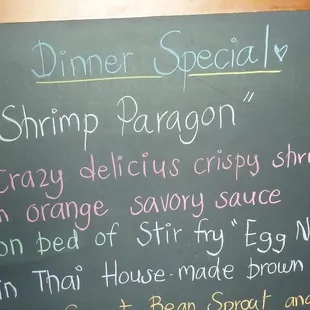 Dinner Special
Shrimp Paragon"
Crazy delicius crispy shr
orange savory sauce
on bed of Stir fry "Egg N
in Thai House-made brown
Bean Sprout and